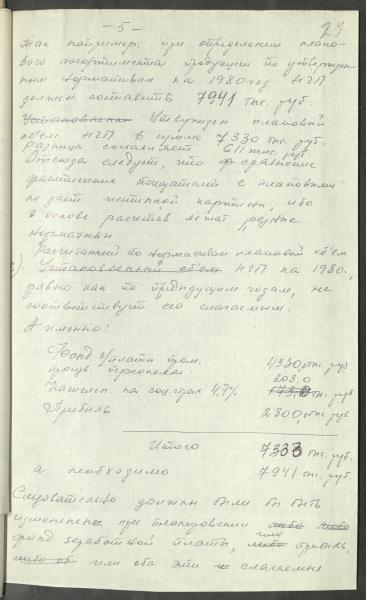 - 5 -
29
Так например: при определении плано-
вого ассортимента продукции по утвержден-
ным нормативам на 1980 год НЧП
должен составить 7941 тыс. руб.
Установленно Утвержден плановой
объем НЧП в сумме 7330 тыс. руб.
Разница составляет 611 тыс. руб.
Отсюда следует, что сравнение
фактических показателей с плановыми
не дает истинной картины, ибо
в основе расчетов лежат разные
нормативы.
Расчитанный по нормативам плановой об'ем
Установленный об'ем НЧП на 1980г,
равно как по предыдущим годам, не
соответствует его слагаемым.
А именно:
Фонд з/платы пром.
произв. персонала 4330,0 тыс. руб
203,0
Начислен. на соц.страх 4,7% 173,0 тыс. руб.
Прибыль 2800,0 тыс. руб.
Итого 7333 тыс. руб.
а необходимо 7941 тыс. руб.
Следовательно должны были бы быть
изменены при планировании либо либо
фонд заработной платы, или либо прибыль,
либо об или оба эти слагаемые.